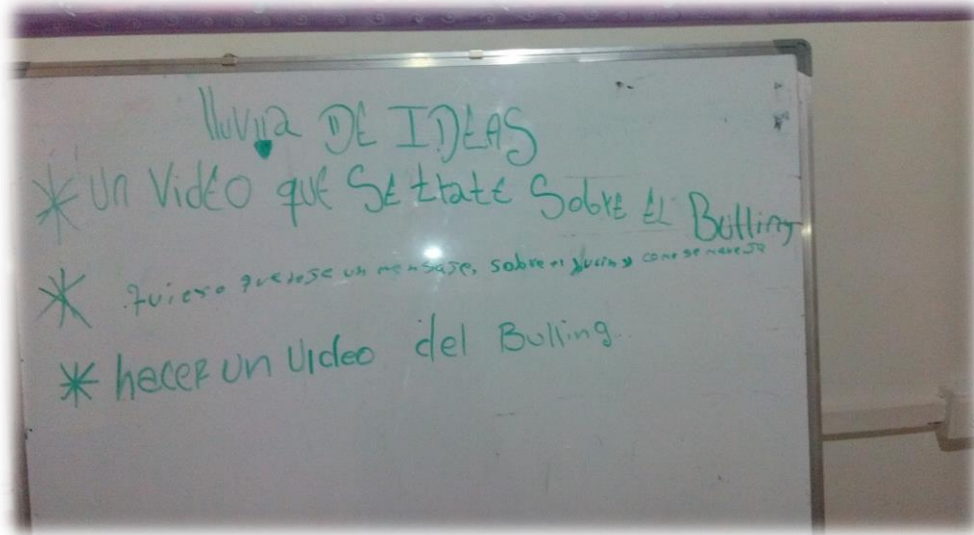 lluvia DE IDEAS
* un VidEO quE SE tratE SobrE EL Bulling
* quiero que dese un mensaje, sobre el y como se maneja
* hacer un Video del Bulling